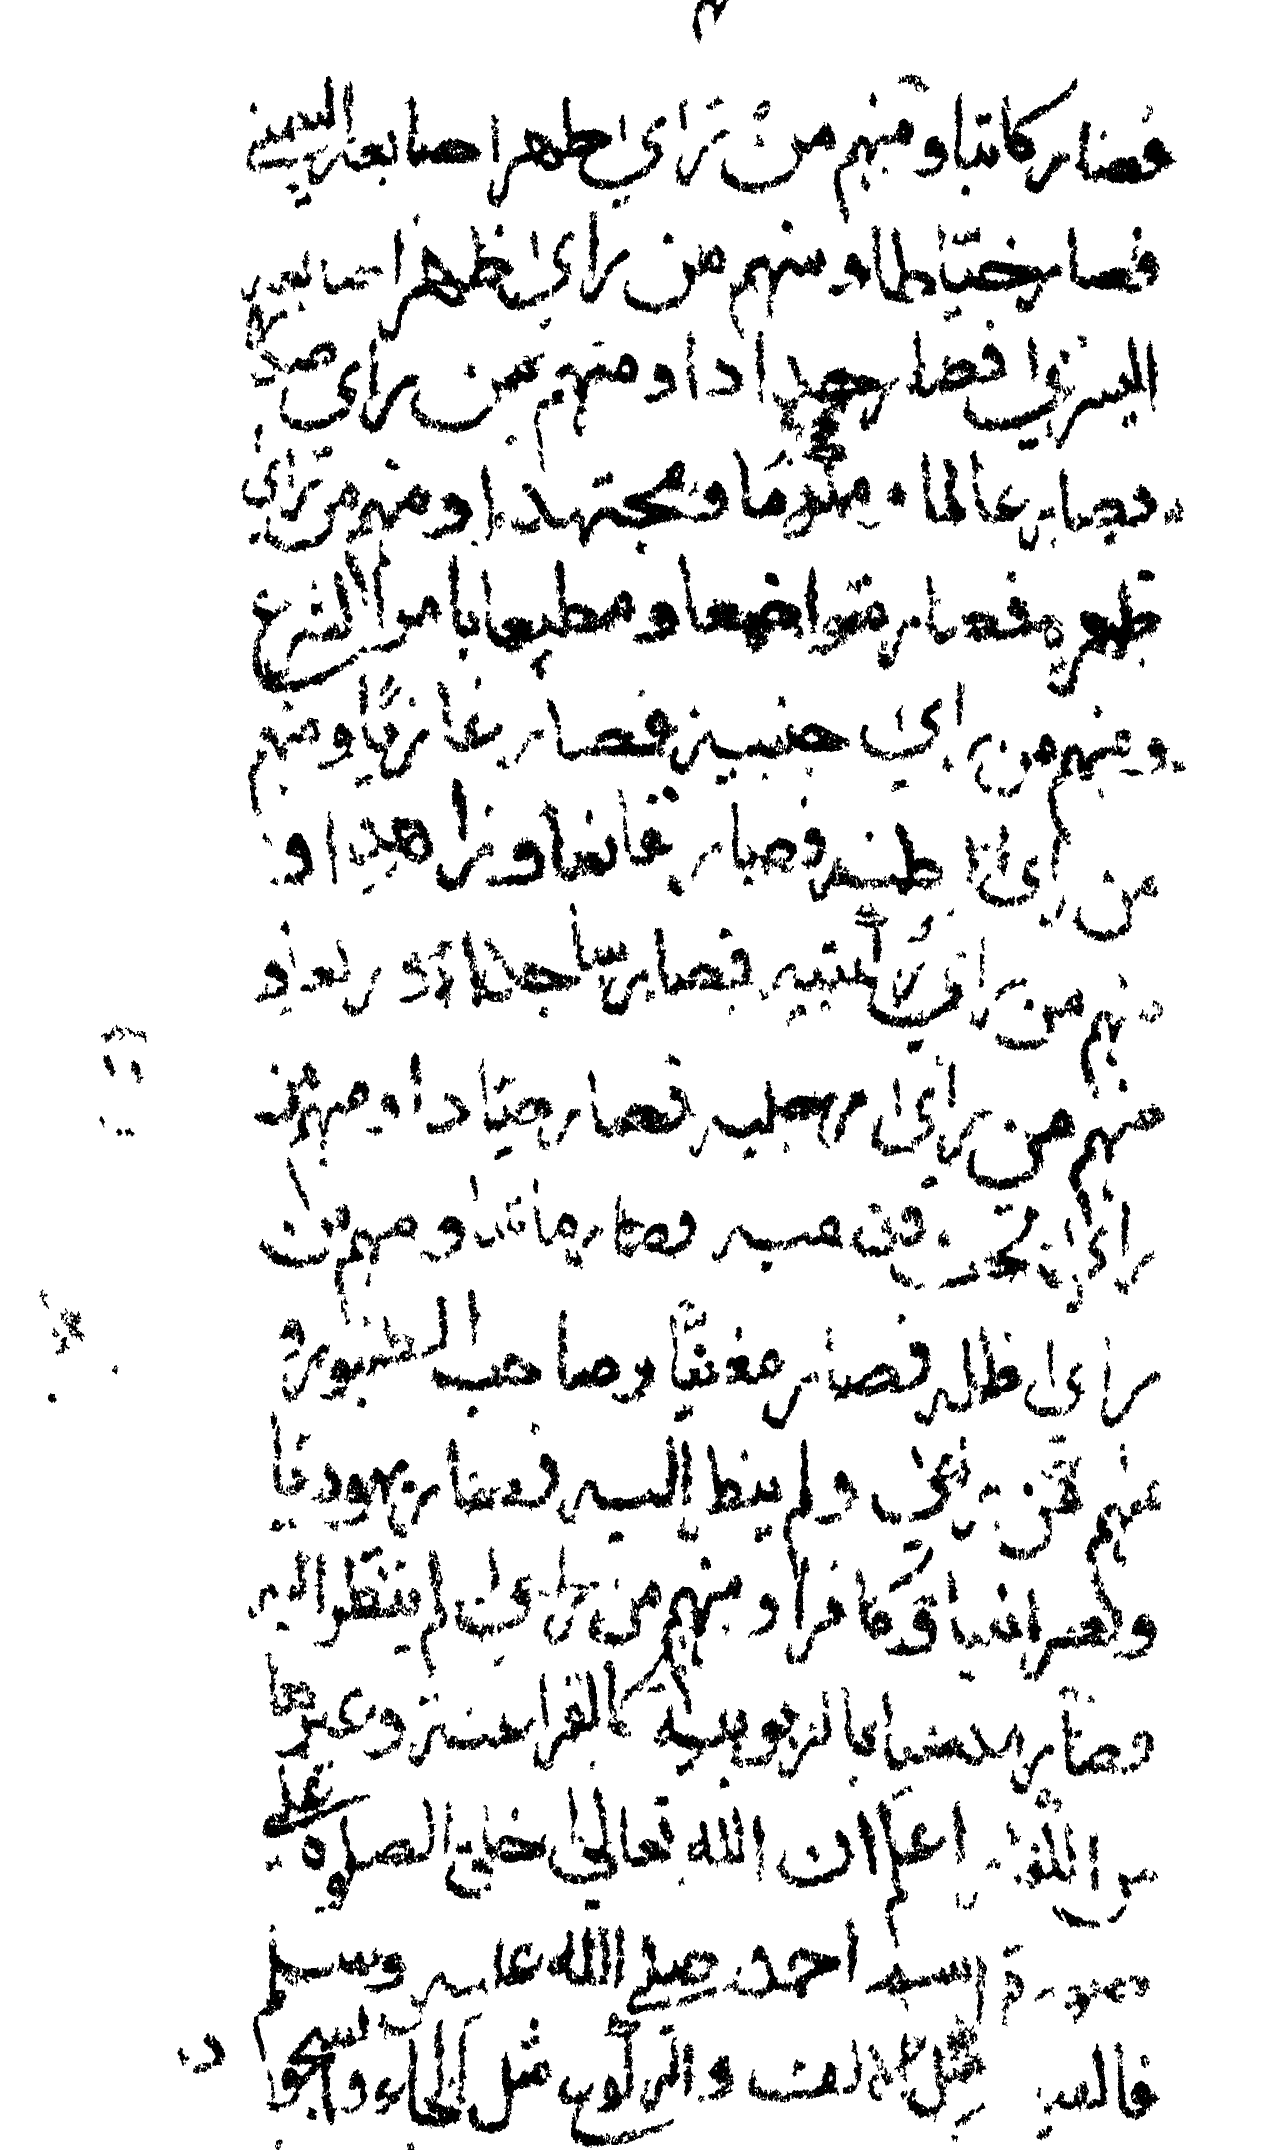 فصار كاتبا ومنهم من راى ظهر اصابعه اليمنى
فصار خياطا ومنهم من راى ظهر اصابعه
اليسرى فصار حدادا ومنهم من راى صدره
فصار عالما مكرما ومجتهدا ومنهم من راى
ظهره فصار متواضعا ومطيعا بامر الشرع
ومنهم من راى جنبيه فصار غازيا ومنهم
من راى بطنه فصار قانعا وزاهدا و
منهم من راى ركبتيه فصار ساجدا وراكعا و
منهم من راى رجليه فصار صيادا ومنهم من
راى تحت قدميه فصار ماشيا ومنهم من
راى ظله فصار مغنيا وصاحب الطنبور و
منهم من راى ولم ينظر اليه فصار يهوديا
ونصرانيا وكافرا ومنهم من لم ينظر اليه
فصار مدعيا بالربوبية كالفراعنة وغيرها
من اعلم ان الله تعالى خلق الصلوة على
صورة اسم احمد صلى الله عليه وسلم
فالقيام مثل الالف والركوع مثل الحاء والسجود